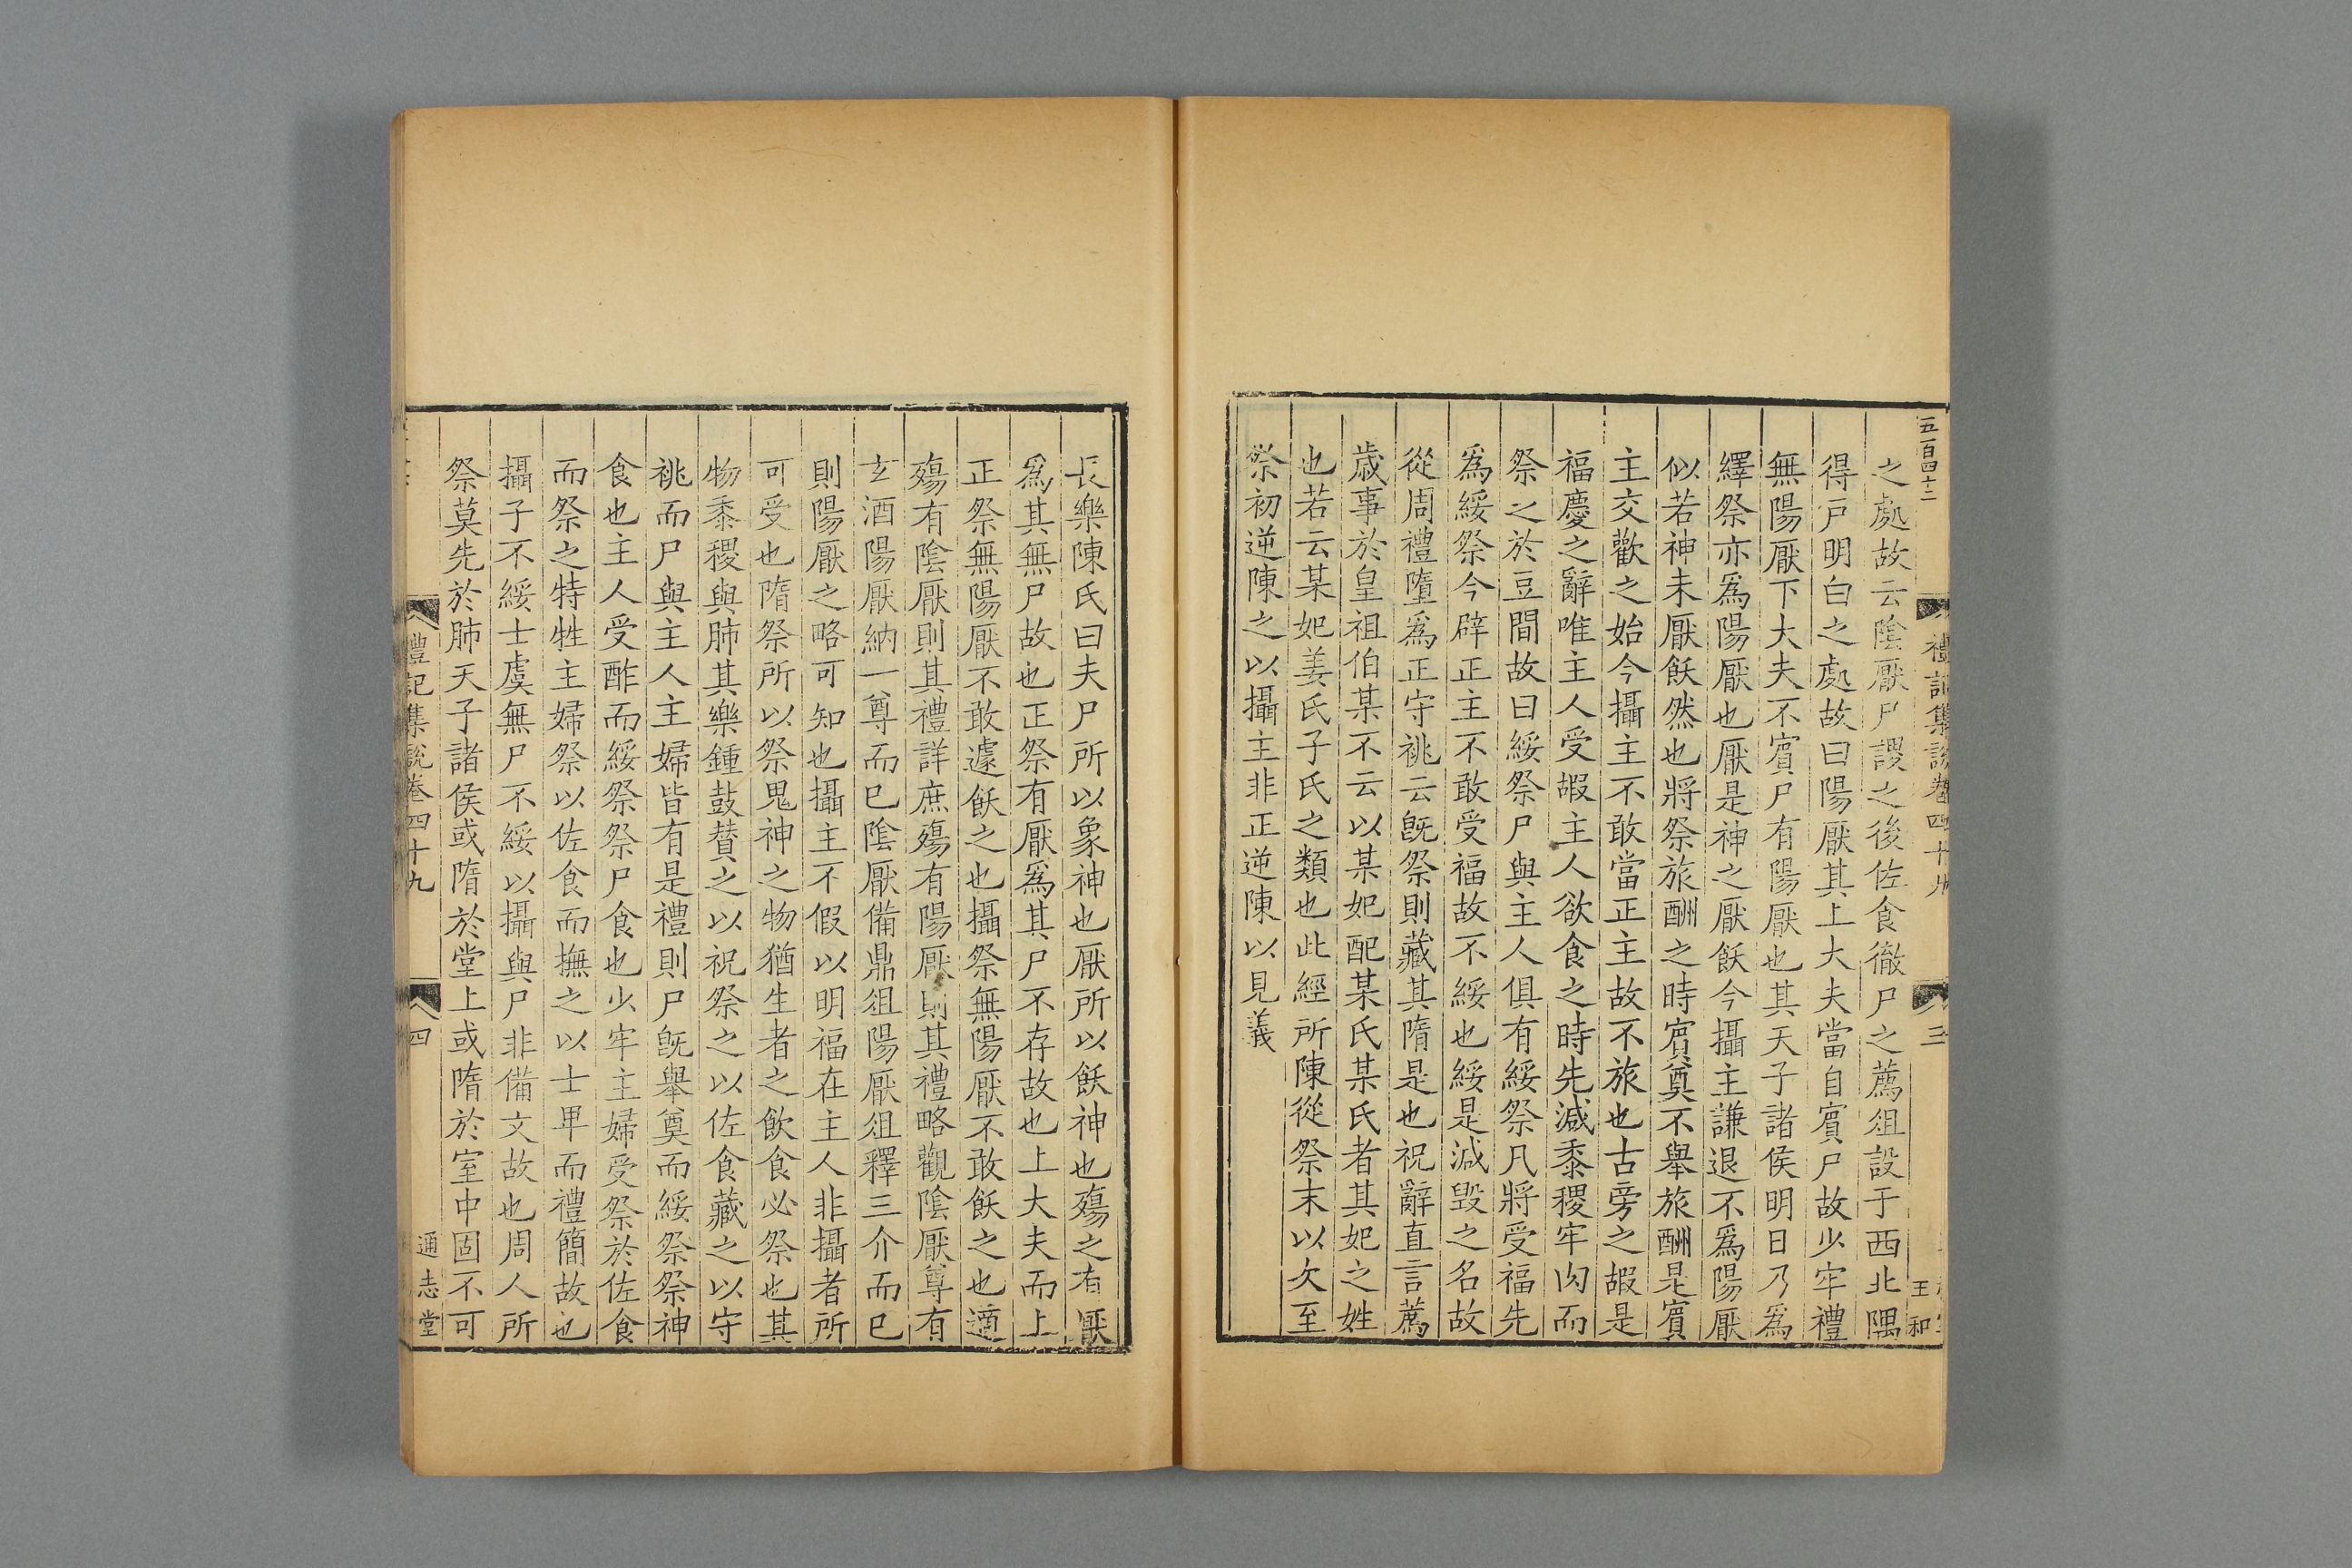 五百四十二
禮記集說卷四十九
三
王和
之處故云陰厭尸謖之後佐食徹尸之薦俎設于西北隅
得戸明白之處故曰陽厭其上大夫當自賓尸故少牢禮
無陽厭下大夫不賓尸有陽厭也其天子諸侯明日乃爲
繹祭亦爲陽厭也厭是神之厭飫今攝主謙退不爲陽厭
似若神未厭飫然也將祭旅酬之時賓奠不舉旅酬是賓
主交歡之始今攝主不敢當正主故不旅也古旁之嘏是
福慶之辭唯主人受嘏主人欲食之時先減黍稷牢肉而
祭之於豆間故曰綏祭尸與主人俱有綏祭凡將受福先
爲綏祭今辟正主不敢受福故不綏也綏是減毀之名故
從周禮墮爲正守祧云旣祭則藏其隋是也祝辭直言薦
歲事於皇祖伯某不云以某妃配某氏某氏者其妃之姓
也若云某妃姜氏子氏之類也此經所陳從祭末以次至
祭初逆陳之以攝主非正逆陳以見義
長樂陳氏曰夫尸所以象神也厭所以飫神也殤之有厭
爲其無尸故也正祭有厭爲其尸不存故也上大夫而上
正祭無陽厭不敢遽飫之也攝祭無陽厭不敢飫之也適
殤有陰厭則其禮詳庶殤有陽厭則其禮略觀陰厭尊有
玄酒陽厭納一尊而已陰厭備鼎俎陽厭俎釋三介而已
則陽厭之略可知也攝主不假以明福在主人非攝者所
可受也隋祭所以祭鬼神之物猶生者之飲食必祭也其
物黍稷與肺其樂鍾鼓賛之以祝祭之以佐食藏之以守
祧而尸與主人主婦皆有是禮則尸旣舉奠而綏祭祭神
食也主人受酢而綏祭祭尸食也少牢主婦受祭於佐食
而祭之特牲主婦祭以佐食而撫之以士卑而禮簡故也
攝子不綏士虞無尸不綏以攝與尸非備文故也周人所
祭莫先於肺天子諸侯或隋於堂上或隋於室中固不可
禮記集說卷四十九
四
通志堂